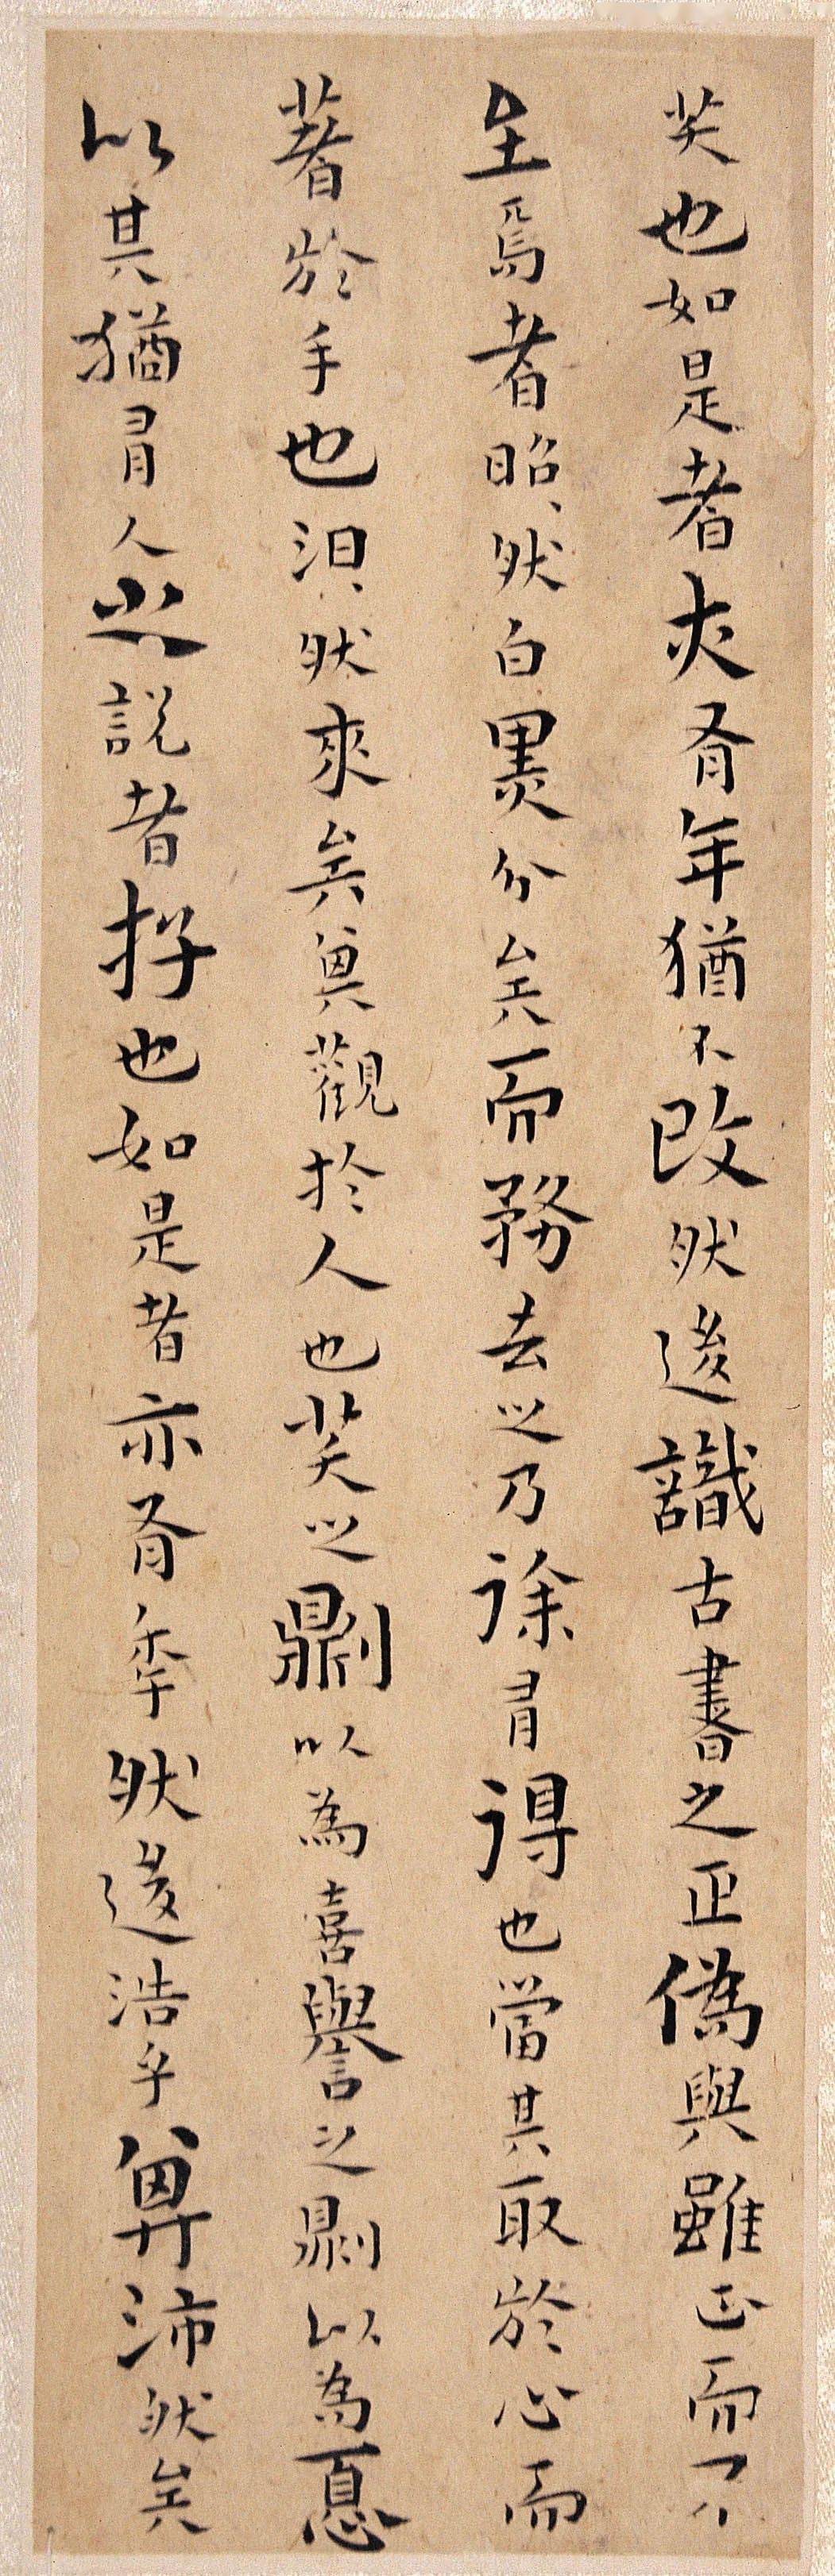 笑也如是者亦有年猶不改然後識古書之正偽與雖正而不
至焉者昭〻然白黑分矣而務去之乃徐有得也當其取於心而
著於手也汩〻然來矣其觀於人也笑之則以為喜譽之則以為憂
以其猶有人之說者存也如是者亦有年然後浩乎其沛然矣